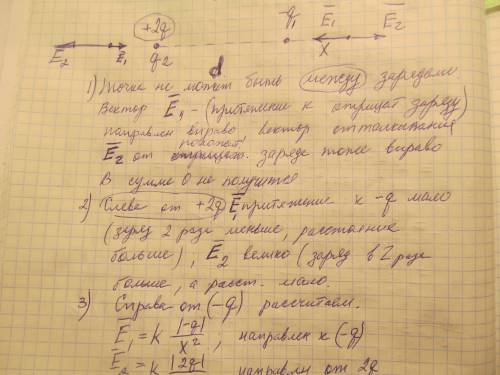 +2q -q₁ E̅₁ E̅₂
E̅₂ E̅₁ q₂ X
d
1) Точка не может быть между зарядами
Вектор E̅₁ - (притяжение к отрицат заряду)
направлен вправо вектор отталкивания
E̅₂ от положит. заряда тоже вправо
В сумме 0 не получится
2) Слева от +2q E̅₁ притяжение к -q мало
(заряд 2 раза меньше, расстояние
больше), E̅₂ велико (заряд в 2 раза
больше, а расст. мало.
3) Справа от (-q) рассчитаем.
E̅₁ = k |-q| / X², направлен к (-q)
= k |2q| направлен от 2q